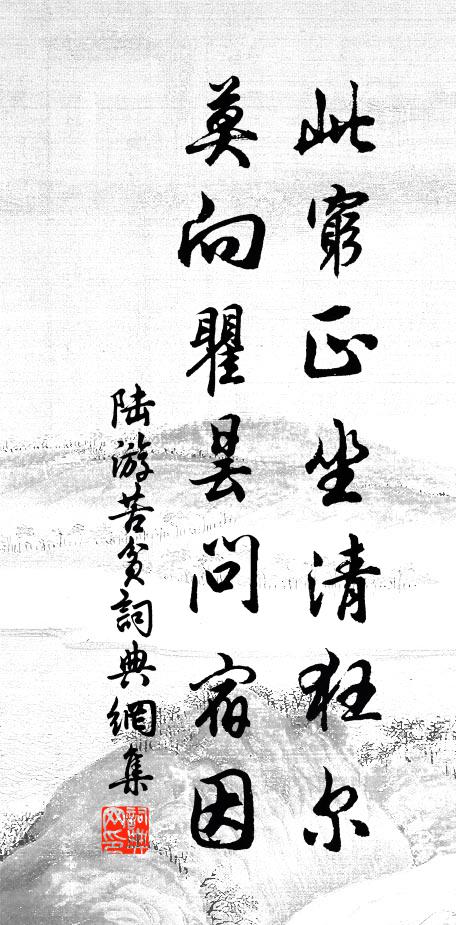 此窮正坐清狂尔
莫向瞿曇問宿因
陆游苦貧詞典網集